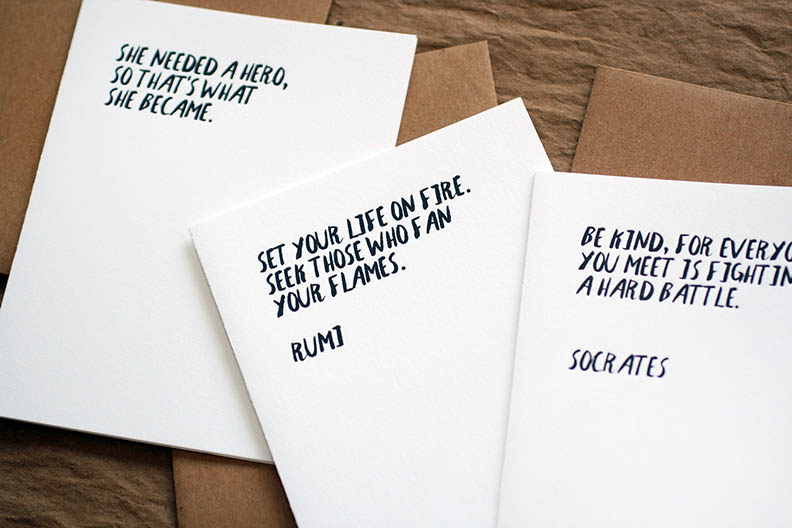 SHE NEEDED A HERO,
SO THAT'S WHAT
SHE BECAME.
SET YOUR LIFE ON FIRE.
SEEK THOSE WHO FAN
YOUR FLAMES.
RUMI
BE KIND, FOR EVERYO
YOU MEET IS FIGHTIN
A HARD BATTLE.
SOCRATES